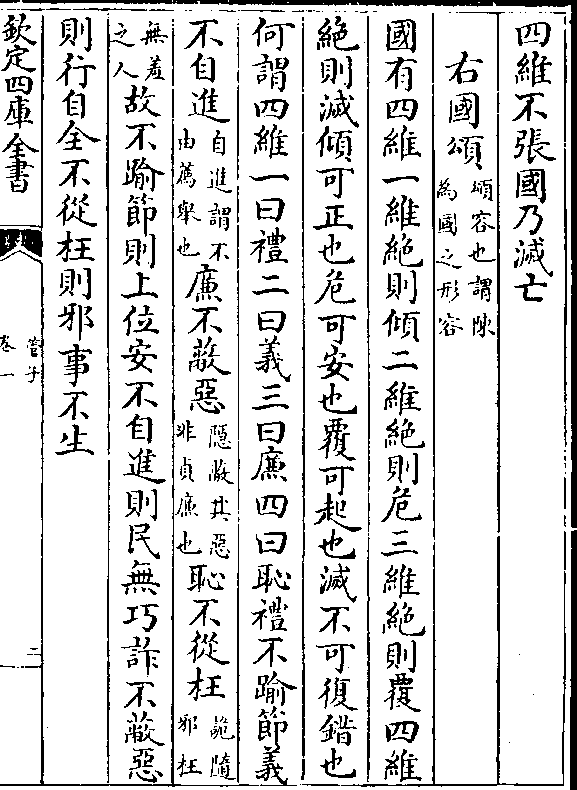 四維不張國乃滅亡
右國頌頌容也謂陳為國之形容
國有四維一維絶則傾二維絶則危三維絶則覆四維
絶則滅傾可正也危可安也覆可起也滅不可復錯也
何謂四維一曰禮二曰義三曰廉四曰恥禮不踰節義
不自進自進謂不由薦舉也廉不蔽惡隱蔽其惡非貞廉也恥不從枉詭隨邪枉
無羞之人故不踰節則上位安不自進則民無巧詐不蔽惡
則行自全不從枉則邪事不生
欽定四庫全書
管子
卷一
二